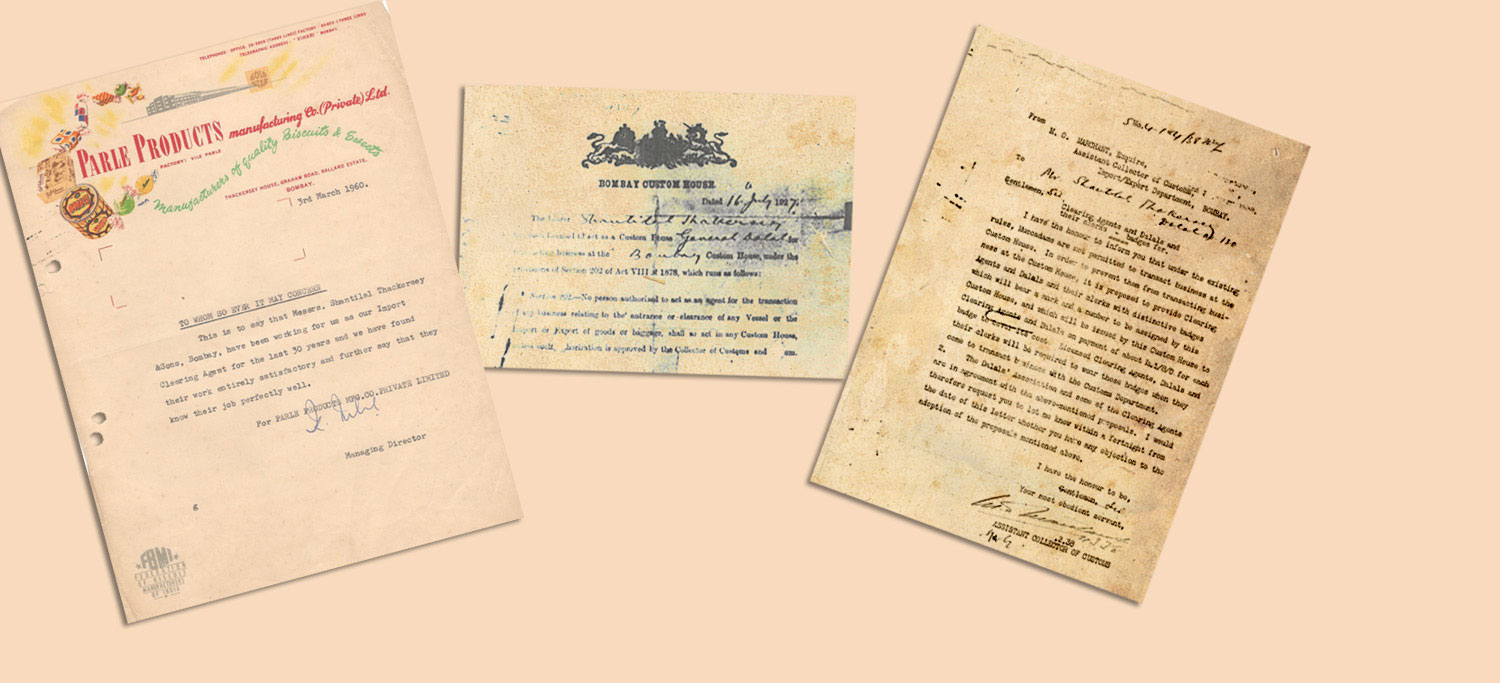 TELEPHONES: OFFICE,
TELEGRAPHIC ADDRESS: BOMBAY.
GOLD STAR
PARLE PRODUCTS manufacturing Co. (Private) Ltd.
FACTORY: VILE PARLE
Manufacturers of quality Biscuits & Sweets
THACKERSEY HOUSE, GRAHAM ROAD, BALLARD ESTATE.
BOMBAY.
3rd March 1960.
TO WHOM SO EVER IT MAY CONCERN
This is to say that Messrs. Shantilal Thackersey
&Sons, Bombay, have been working for us as our Import
Clearing Agent for the last 30 years and we have found
their work entirely satisfactory and further say that they
know their job perfectly well.
For PARLE PRODUCTS MFG.CO.PRIVATE LIMITED
Managing Director
FBMI
FEDERATION
OF BISCUIT
MANUFACTURERS
OF INDIA
BOMBAY CUSTOM HOUSE.
Dated 16 July 1927.
Shantilal Thakersey
act as a Custom House General Dalal
business at the Bombay Custom House, under the
provisions of Section 202 of Act VIII of 1878, which runs as follows:
Section 202.—No person authorised to act as an agent for the transaction
of any business relating to the entrance or clearance of any Vessel or the
Import or Export of goods or baggage, shall so act in any Custom House,
is approved by the Collector of Customs and
From
MARCHANT, Esquire,
Assistant Collector of Customs,
Import/Export Department,
BOMBAY.
To
Mr Shantilal Thakersey
Dalal
Gentlemen, Sir
Clearing Agents and Dalals and
their clerks badges for.
I have the honour to inform you that under the existing
rules, Muccadams are not permitted to transact business at the
Custom House. In order to prevent them from transacting busi-
ness at the Custom House, it is proposed to provide Clearing
Agents and Dalals and their clerks with distinctive badges
which will bear a mark and a number to be assigned by this
Custom House, and which will be issued by this Custom House to
Clearing Agents and Dalals on payment of about Rs.1/8/0 for each
badge to cost. Licensed Clearing Agents, Dalals and
their clerks will be required to wear these badges when they
come to transact business with the Customs Department.
2. The Dalals' Association and some of the Clearing Agents
are in agreement with the above-mentioned proposals. I would
therefore request you to let me know within a fortnight from
the date of this letter whether you have any objection to the
adoption of the proposals mentioned above.
I have the honour to be,
Gentlemen, Sir
Your most obedient servant,
ASSISTANT COLLECTOR OF CUSTOMS